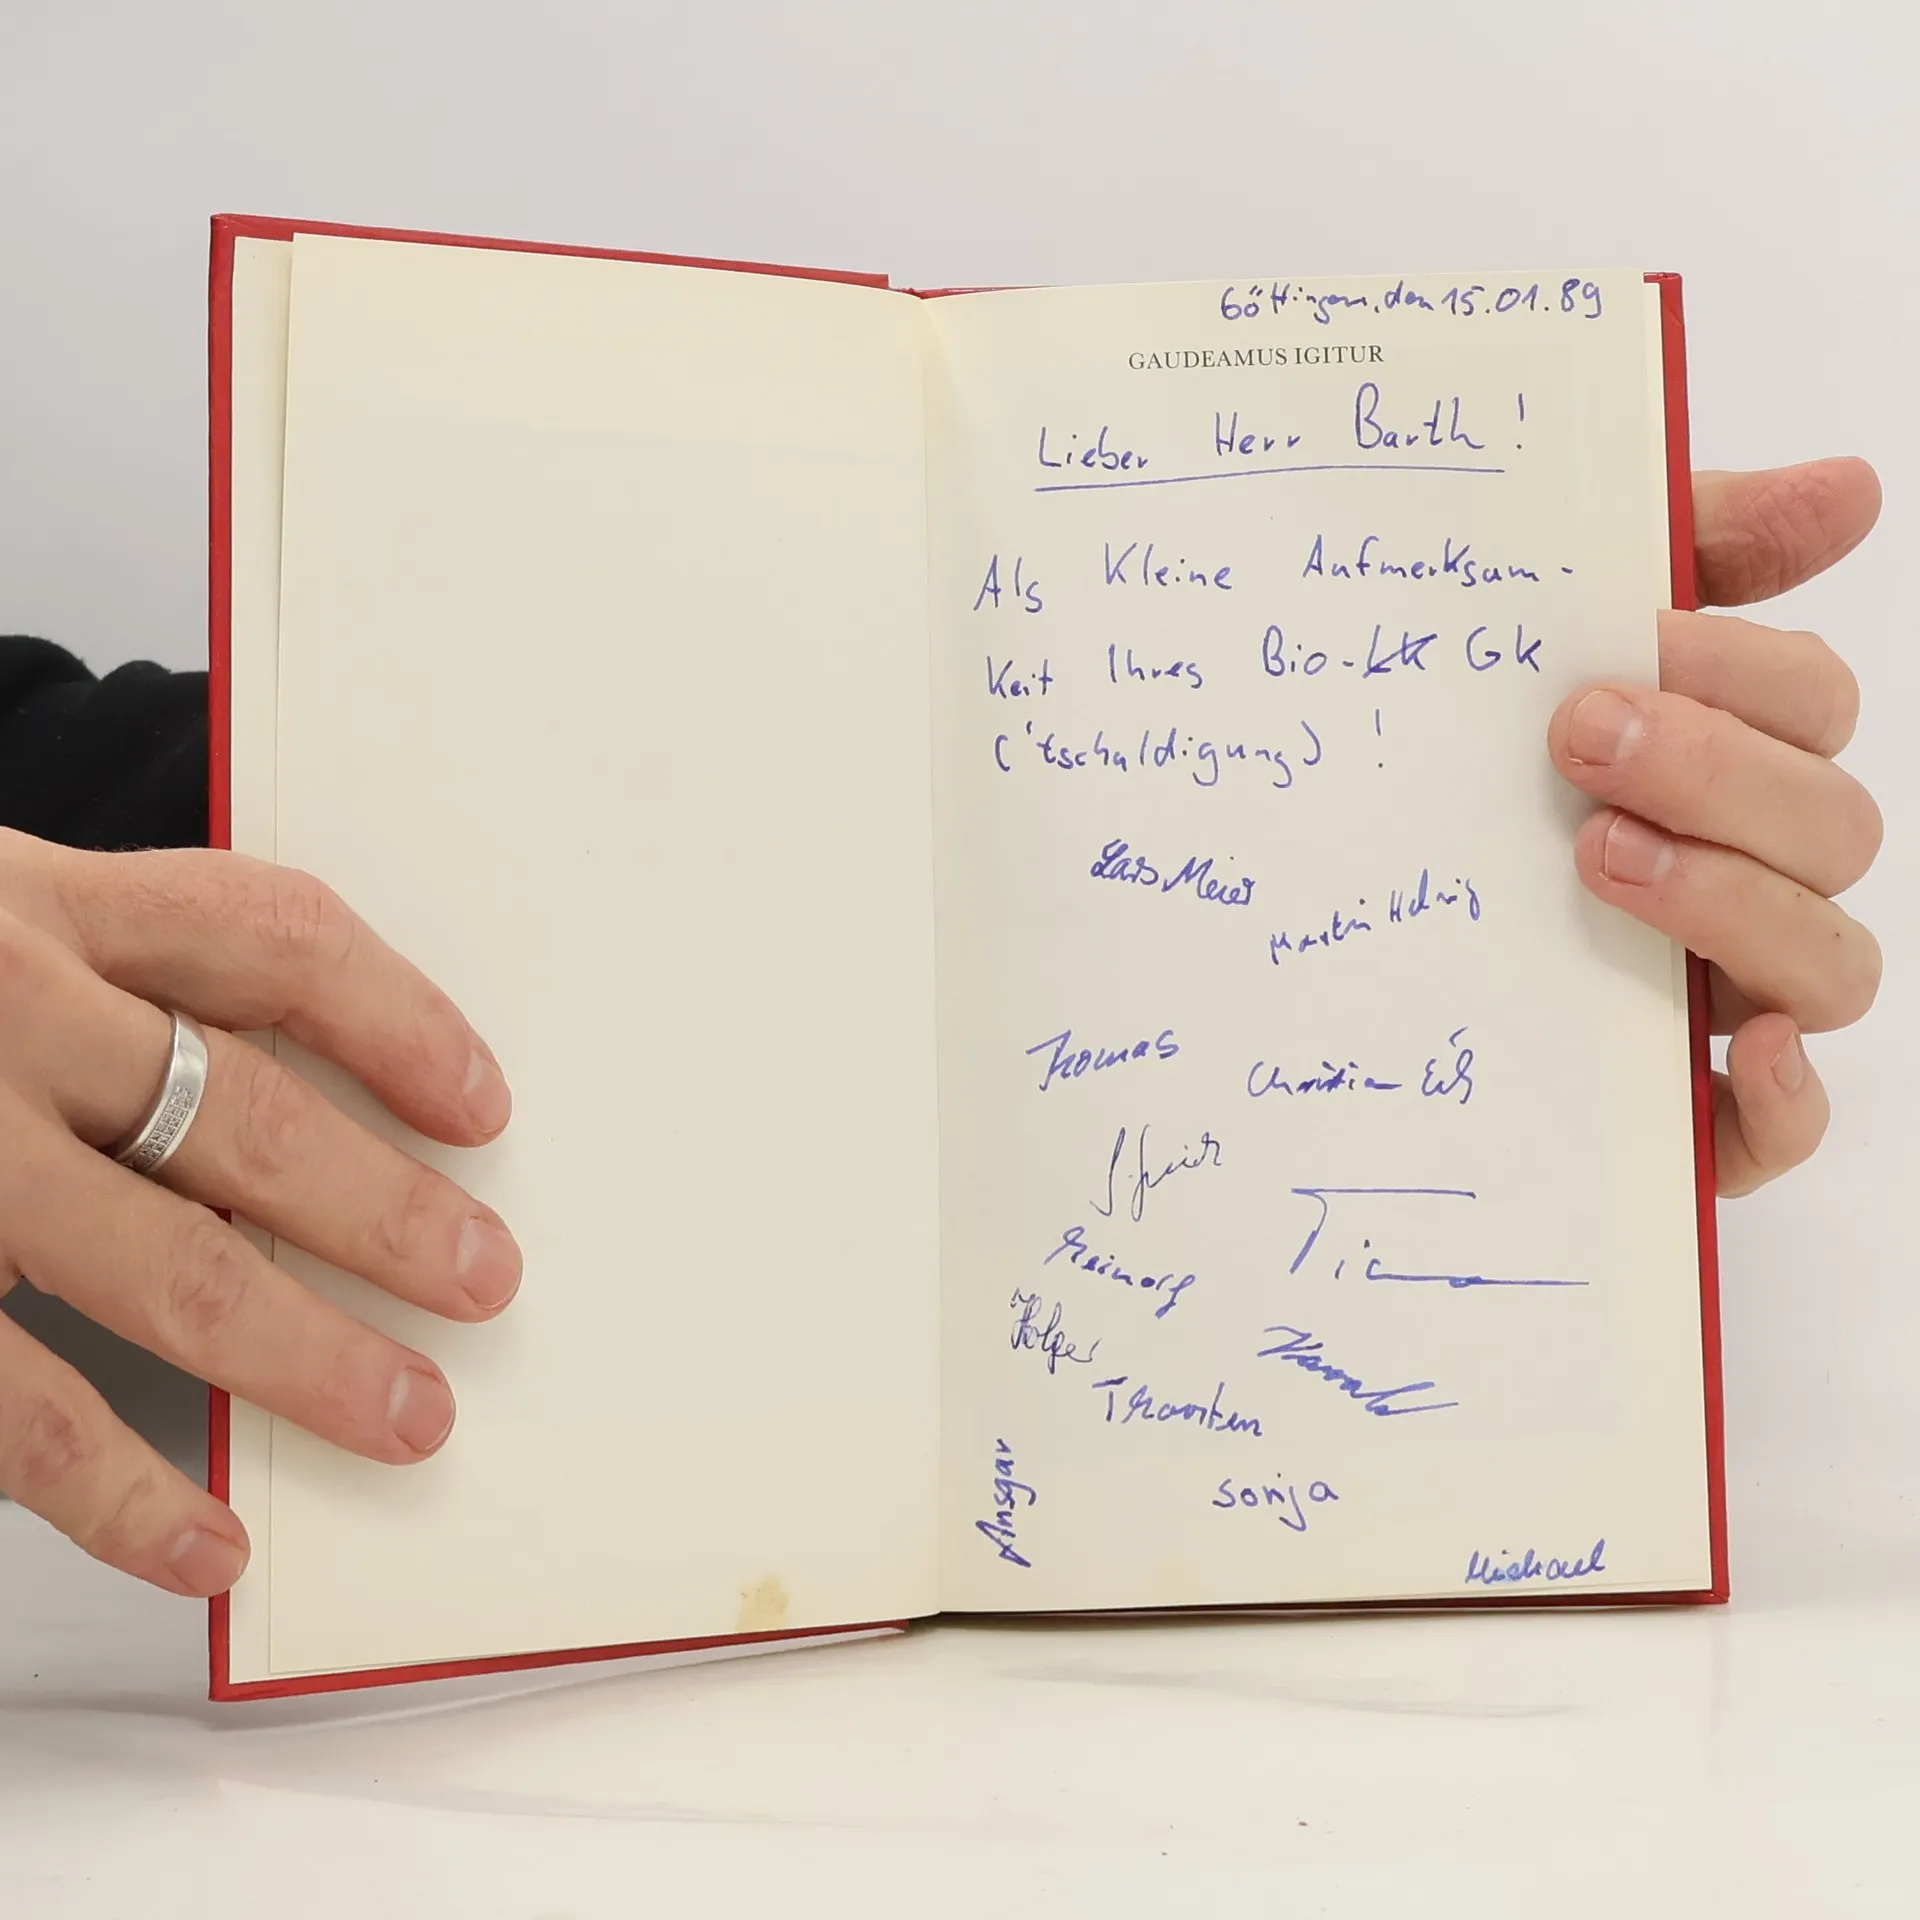 Göttingen, den 15.01.89
GAUDEAMUS IGITUR
Lieber Herr Barth!
Als Kleine Aufmerksam-
keit Ihres Bio-LK GK
('tschuldigung)!
Lars Meier
Martin Helwig
Thomas
Christian
Meinolf
Holger
Thorsten
Ansgar
Sonja
Michael